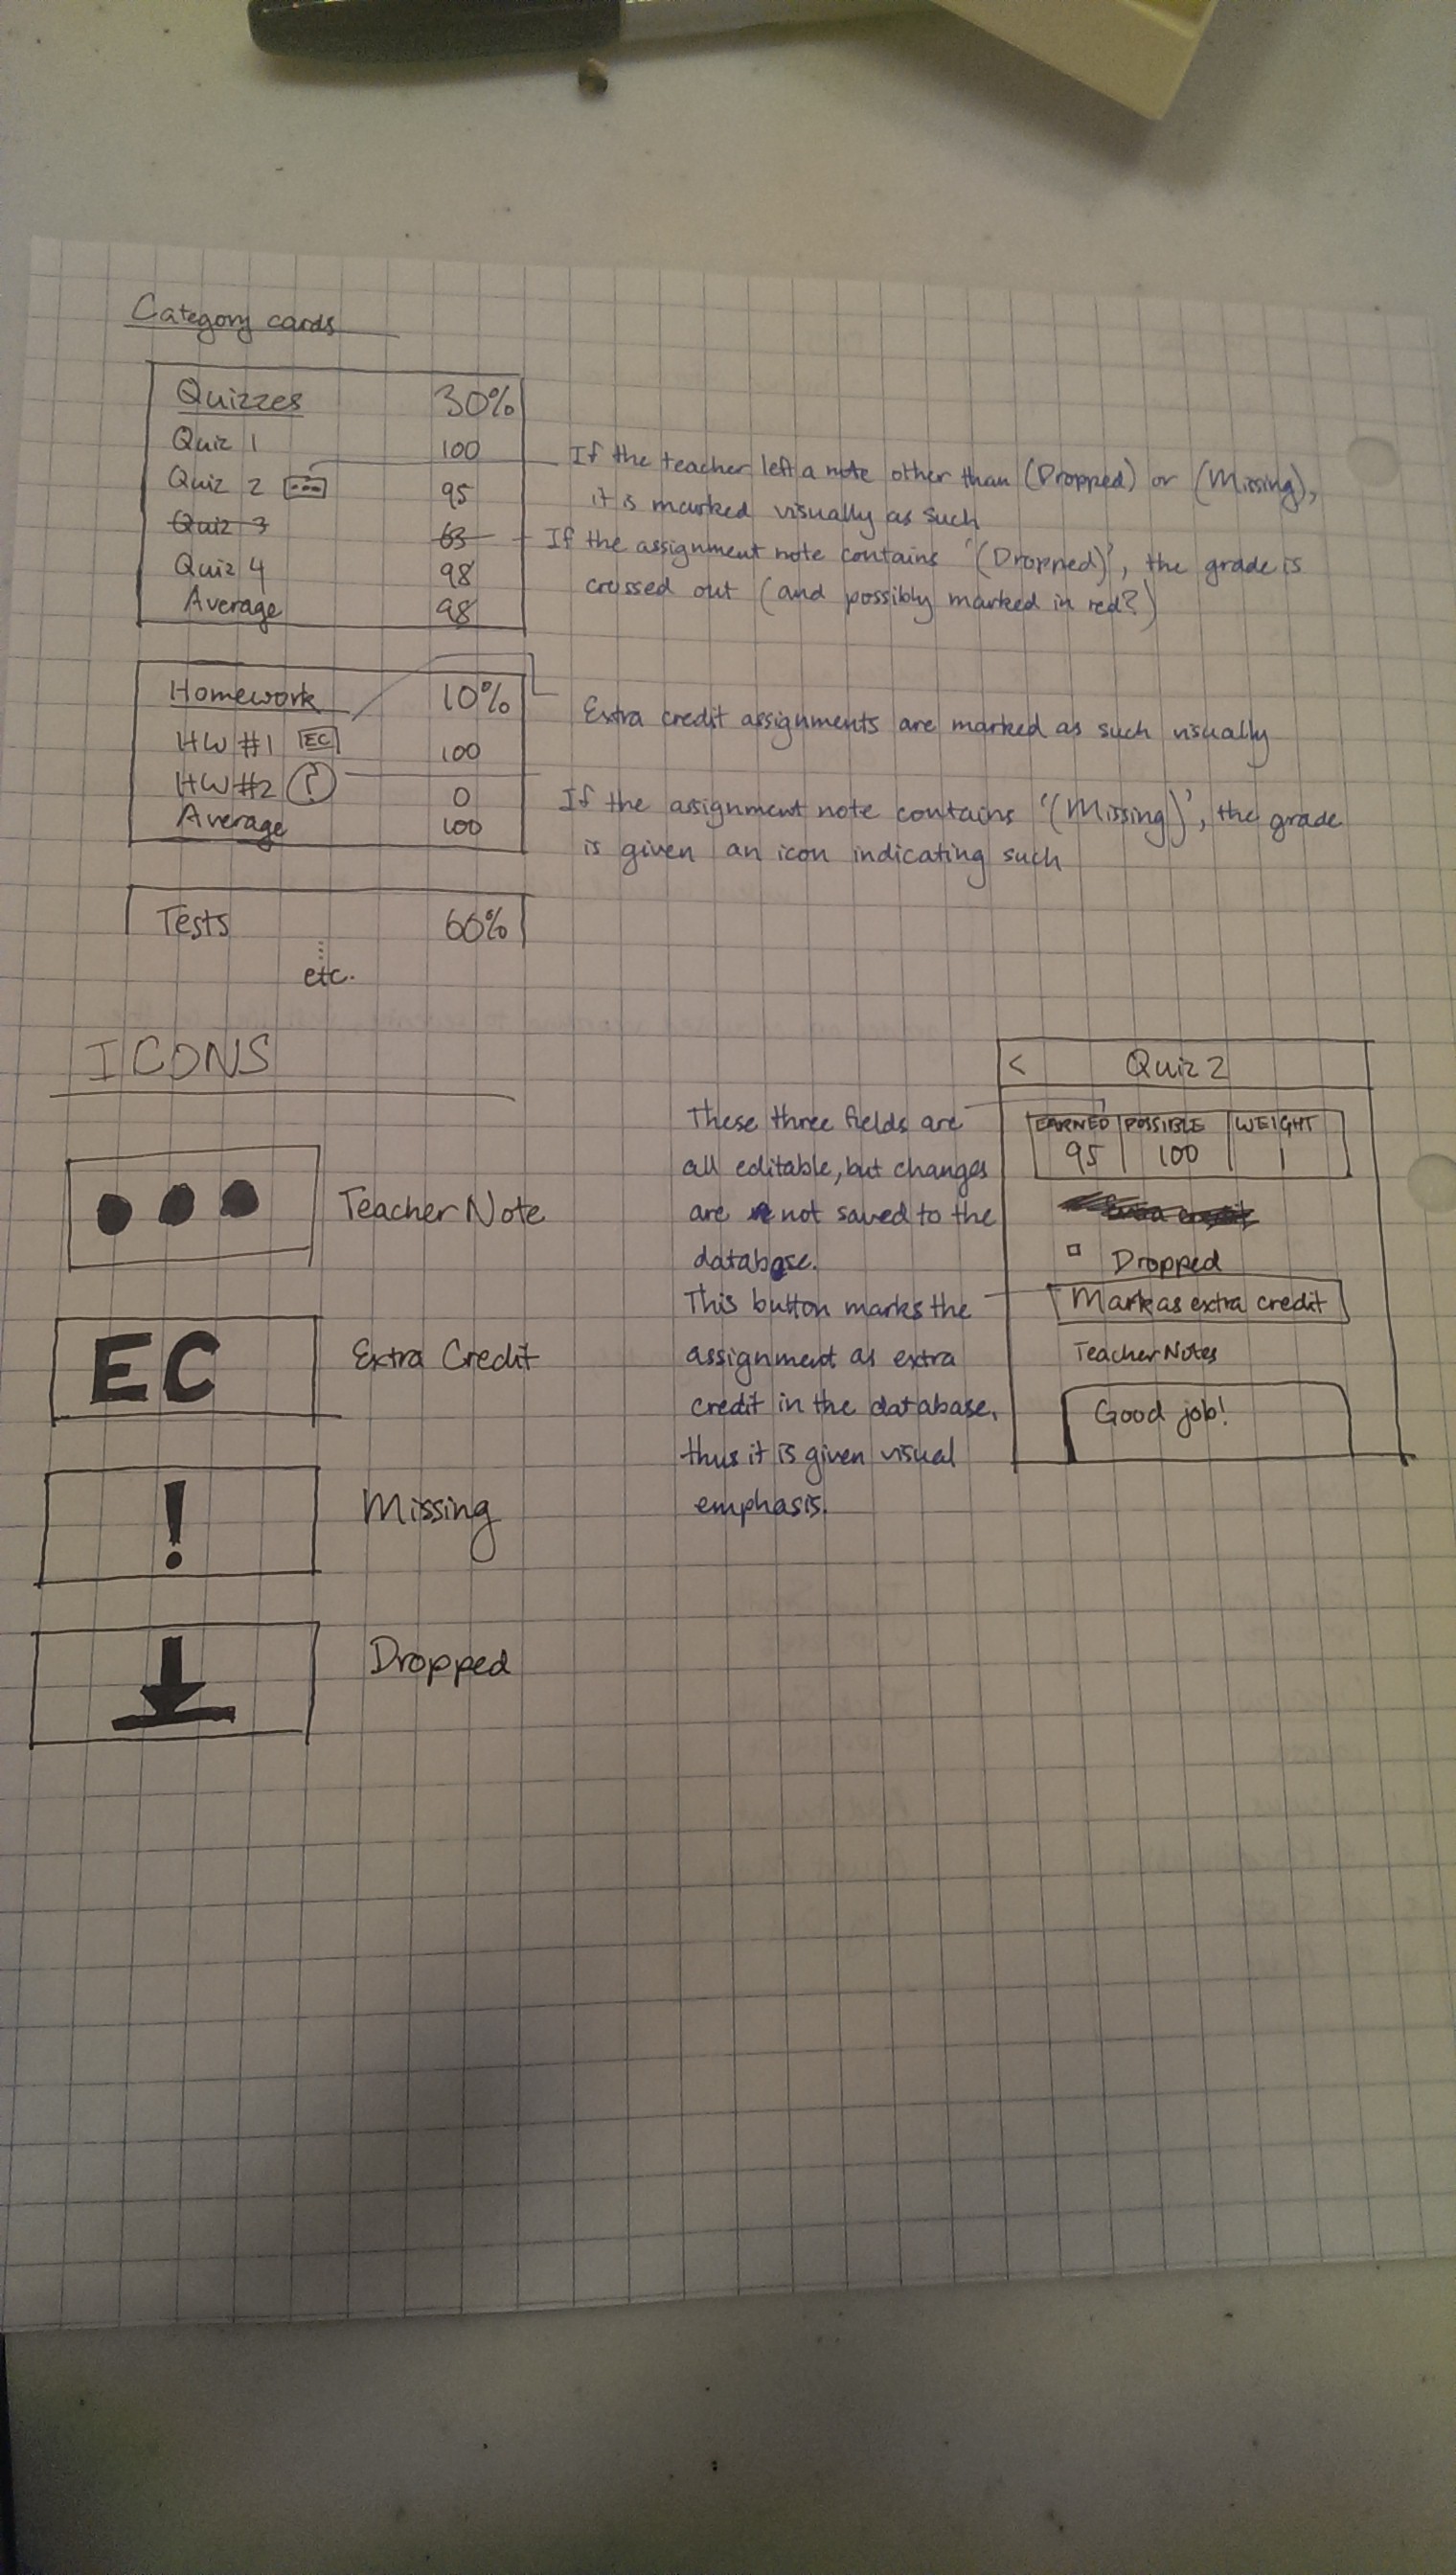 Category cards
Quizzes 30%
Quiz 1 100
Quiz 2 95
Quiz 3 63
Quiz 4 98
Average 98
If the teacher left a note other than (Dropped) or (Missing),
it is marked visually as such
If the assignment note contains '(Dropped)', the grade is
crossed out (and possibly marked in red?)
Homework 10%
HW #1 EC 100
HW #2 ! 0
Average 100
Extra credit assignments are marked as such visually
If the assignment note contains '(Missing)', the grade
is given an icon indicating such
Tests 60%
etc.
ICONS
Teacher Note
EC Extra Credit
! Missing
Dropped
These three fields are
all editable, but changes
are not saved to the
database.
This button marks the
assignment as extra
credit in the database,
thus it is given visual
emphasis.
< Quiz 2
EARNED POSSIBLE WEIGHT
95 100 1
Dropped
Mark as extra credit
Teacher Notes
Good job!